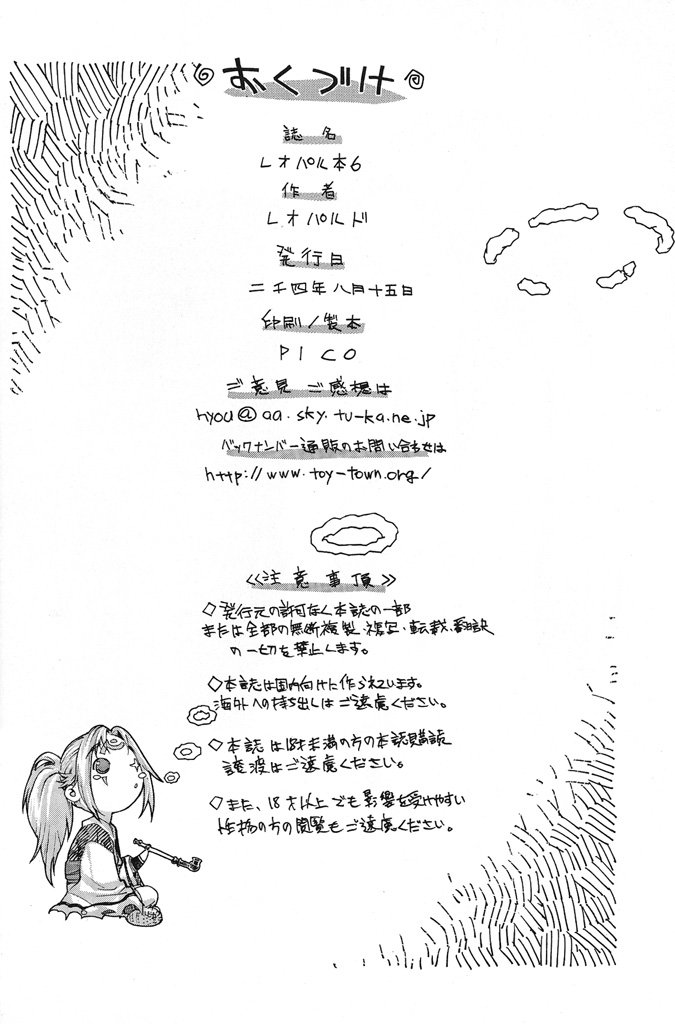 おくづけ
誌名
レオパル本6
作者
レオパルド
発行日
二千四年八月十五日
印刷/製本
PICO
ご意見 ご感想は
hyou@aa.sky.tu-ka.ne.jp
バックナンバー通販のお問い合せは
http://www.toy-town.org/
≪注意事項≫
◇発行元の許可なく本誌の一部
または全部の無断複製・複写・転載、翻訳
の一切を禁止します。
◇本誌は国内向けに作られています。
海外への持ち出しはご遠慮ください。
◇本誌は18才未満の方の本誌購読
譲渡はご遠慮ください。
◇また、18才以上でも影響を受けやすい
性格の方の閲覧もご遠慮ください。